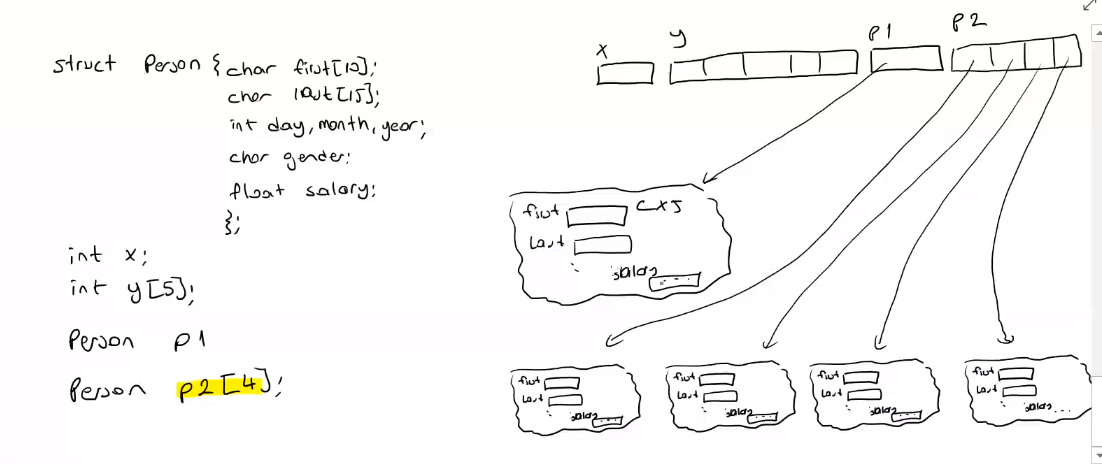 struct Person { char first[10];
char last[15];
int day, month, year;
char gender;
float salary;
};
int x;
int y[5];
Person p1
Person p2[4];
x
y
p1
p2
first
last
salary
first
last
salary
first
last
salary
first
last
salary
first
last
salary ...